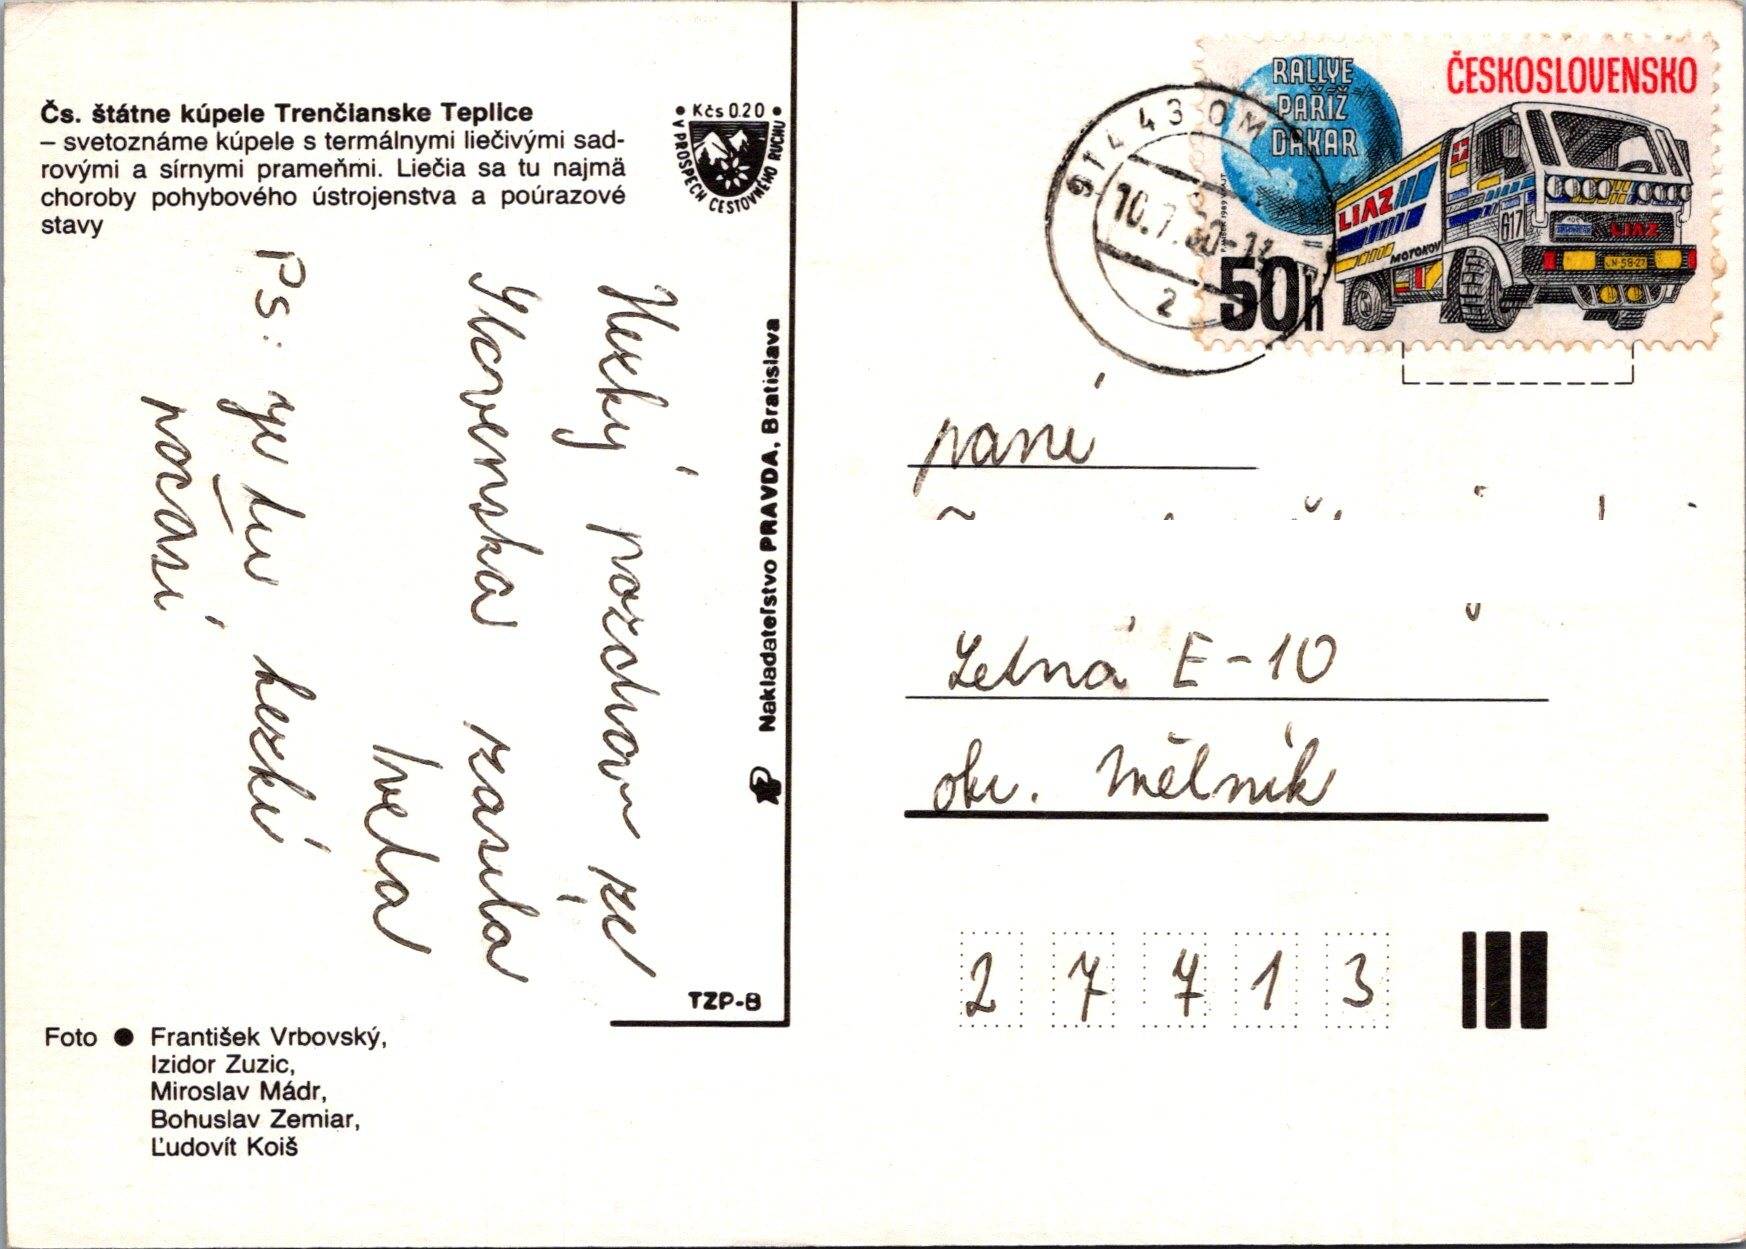 Čs. štátne kúpele Trenčianske Teplice
– svetoznáme kúpele s termálnymi liečivými sad-
rovými a sírnymi prameňmi. Liečia sa tu najmä
choroby pohybového ústrojenstva a poúrazové
stavy
Kčs 0.20
V PROSPECH CESTOVNÉHO RUCHU
Hezký pozdrav ze
Slovenska zasílá
Iveta
Ps: je tu hezké
počasí
Nakladateľstvo PRAVDA, Bratislava
TZP-B
Foto ● František Vrbovský,
Izidor Zuzic,
Miroslav Mádr,
Bohuslav Zemiar,
Ľudovít Koiš
RALLYE
PAŘÍŽ
DAKAR
ČESKOSLOVENSKO
LIAZ
MOTOKOV
617
LIAZ
50h
914 43 OM
10.7.
2
paní
Letná E-10
okr. Mělník
277 13